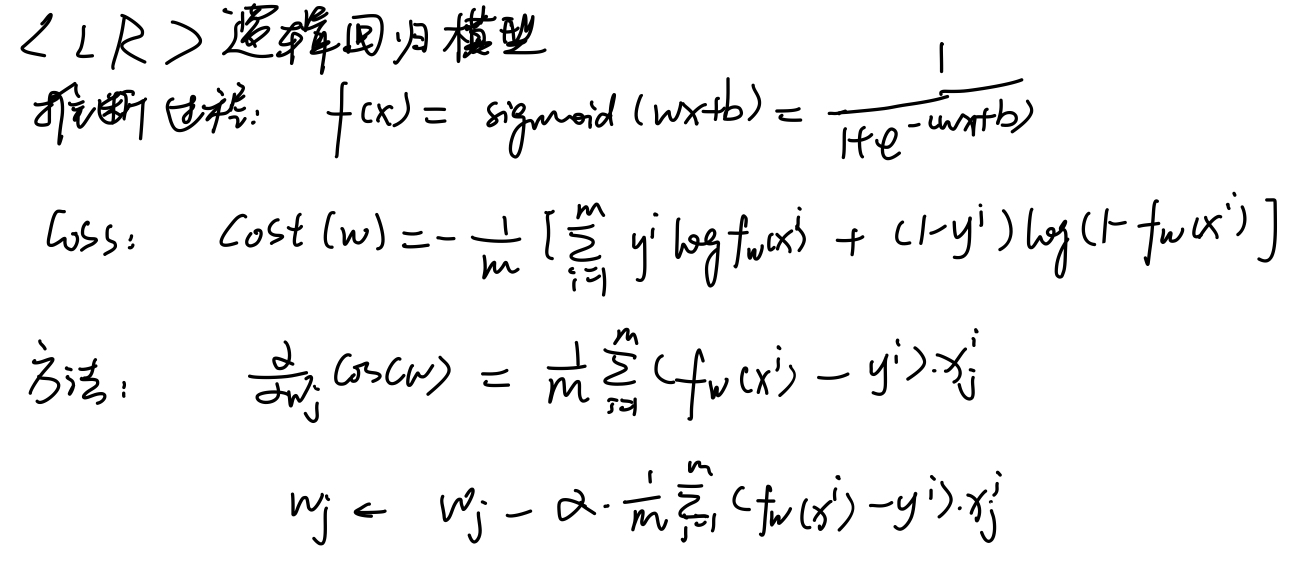 <LR> 逻辑回归模型
推断过程: f(x) = sigmoid(wx+b) = \frac{1}{1+e^{-(wx+b)}}
Loss: Cost(w) = -\frac{1}{m} [\sum_{i=1}^{m} y^i log f_w(x^i) + (1-y^i) log(1-f_w(x^i)]
方法: \frac{∂}{∂w_j} Cos(w) = \frac{1}{m} \sum_{i=1}^{m} (f_w(x^i) - y^i)·x_j^i
w_j ← w_j - α·\frac{1}{m} \sum_{i=1}^{m} (f_w(x^i) - y^i)·x_j^i